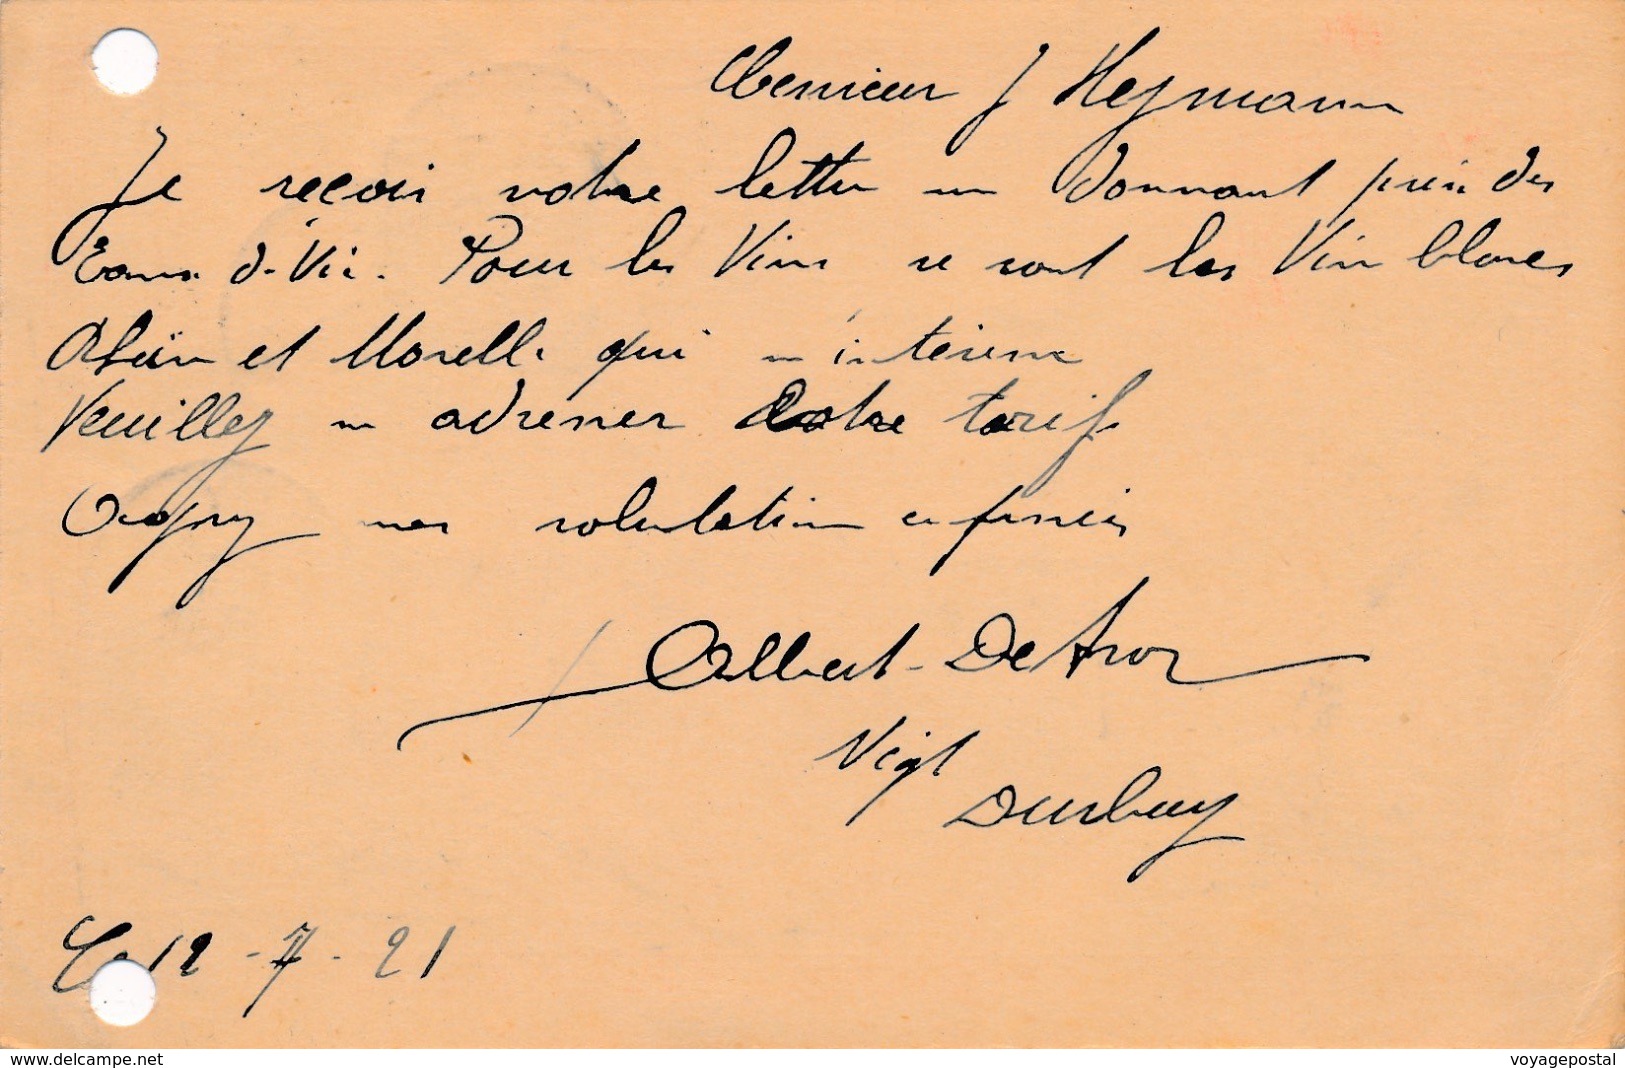 Monsieur J Heymann
Je reçois votre lettre me donnant prix des
Eaux de Vie. Pour les Vins ce sont les Vins blancs
Rhin et Moselle qui m'intéresse
Veuillez m adresser votre tarif
Agréez mes salutations empressées
Albert-Detroz
Négt
Durbuy
Le 12-7-21
www.delcampe.net
voyagepostal